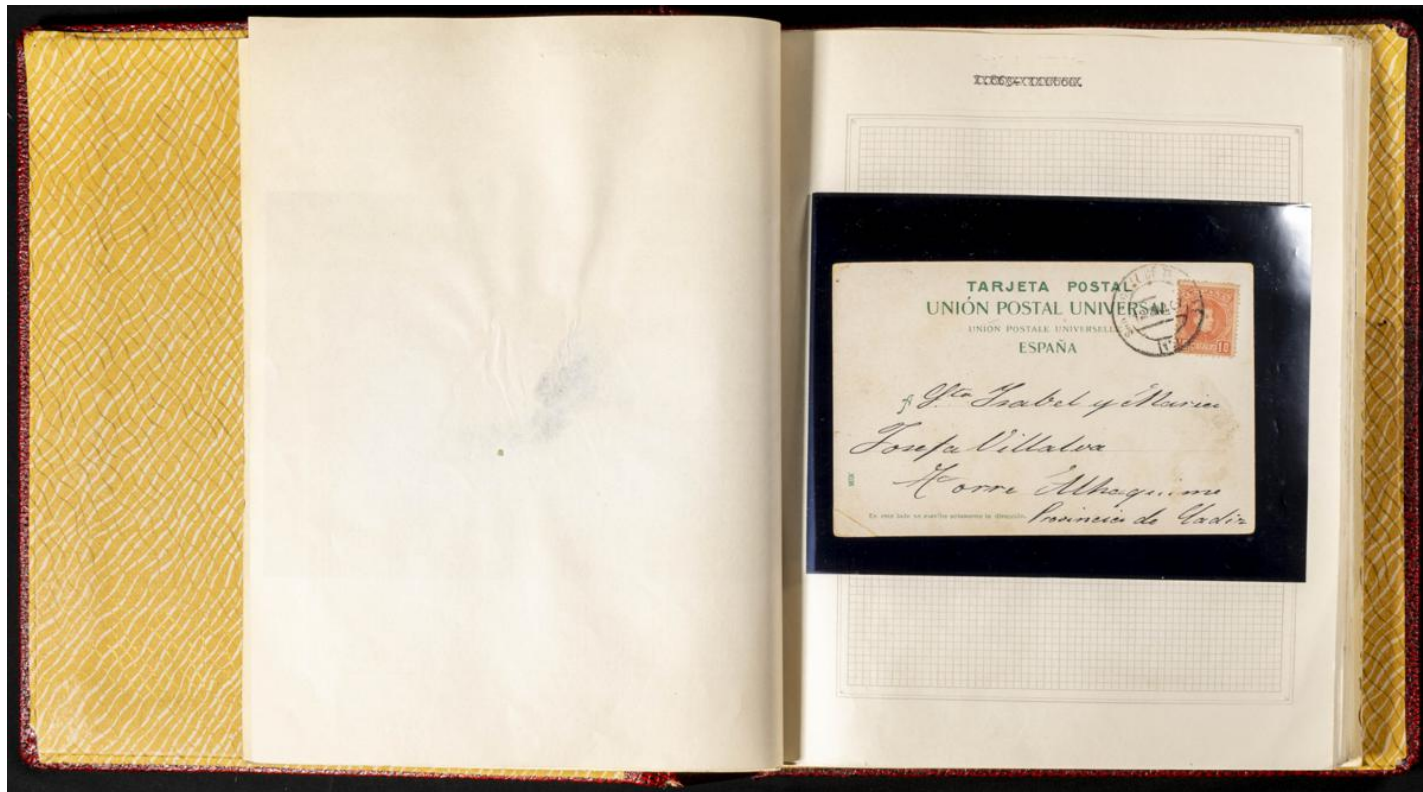 TARJETA POSTAL
UNIÓN POSTAL UNIVERSAL
UNION POSTALE UNIVERSELLE
ESPAÑA
A Sta Isabel y Maria
Josefa Villalva
Torre Alhaquime
En este lado se escribe solamente la dirección.
Provincia de Cadiz
10